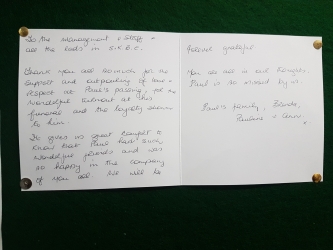 To the management & Staff &
all the lads in S.K.B.C.
Thank you all so much for the
support and outpouring of love &
respect at Paul's passing, for the
wonderful turnout at his
funeral and the loyalty shown
to him.
It gives us great comfort to
know that Paul had such
wonderful friends and was
so happy in the company
of you all. We will be
forever grateful.
You are all in our thoughts,
Paul is so missed by us
Paul's family,
Pauline & Ann.